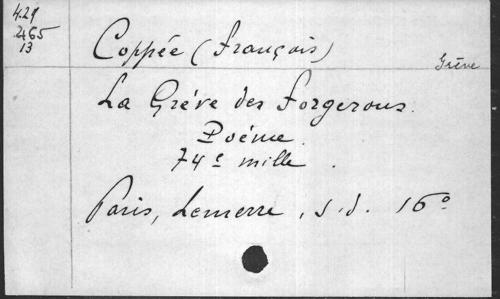 4.29
2465
13
Coppée (François)
Grève
La Grève des Forgerons.
Poéme.
74e mille.
Paris, Lemerre, s.d. 16°